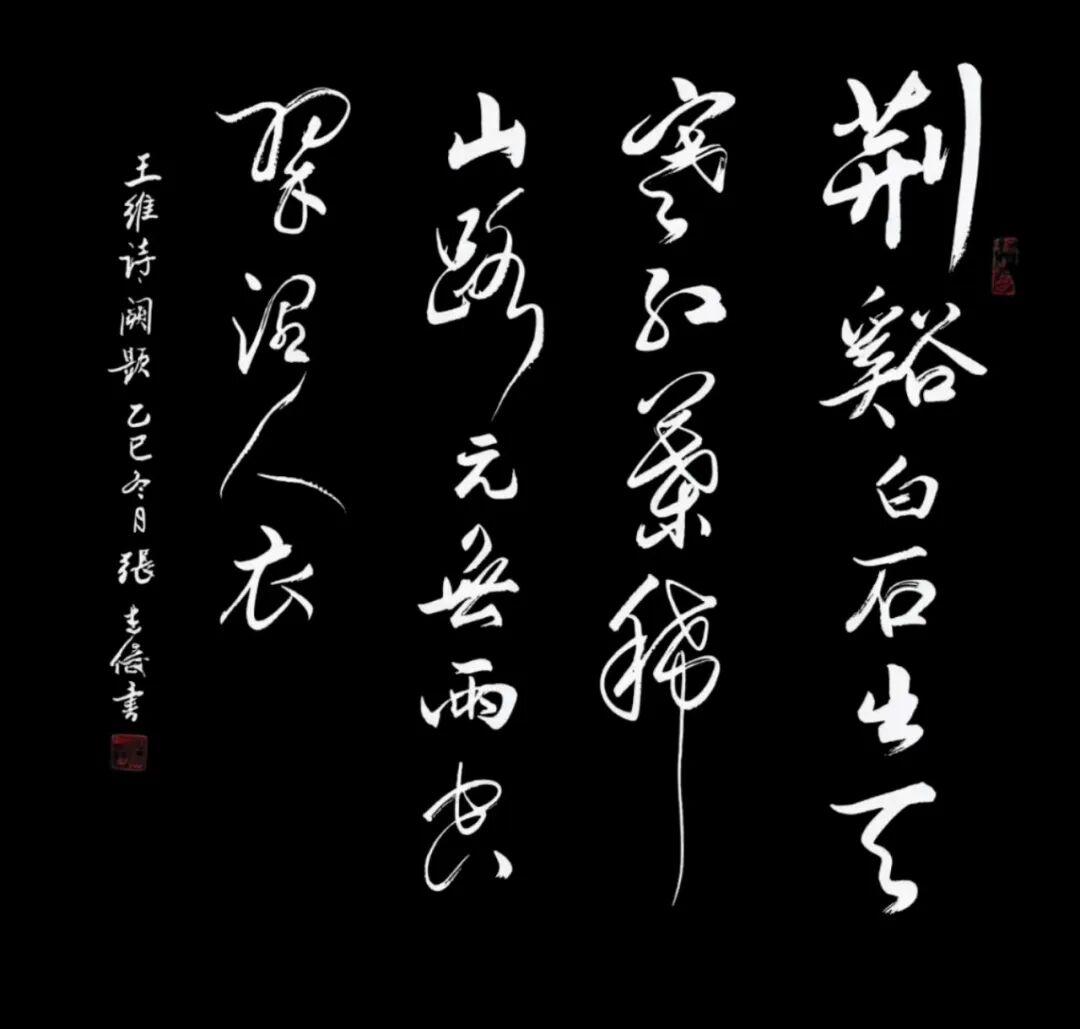 荆谿白石出天
寒红葉稀
山路元無雨空
翠湿人衣
王維诗阙题 乙巳冬月 張志俊书